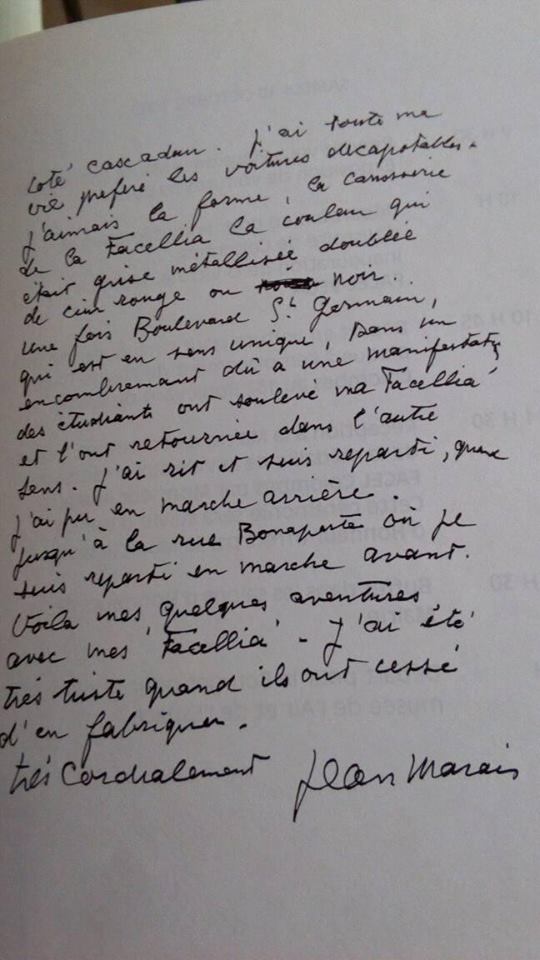 Coté cascadeur. J'ai toute ma
vie preferé les voitures décapotables.
J'aimais la forme, la carrosserie
de la Facellia la couleur qui
était grise métallisée doublée
de cuir rouge ou noir.
une fois Boulevard St Germain,
qui est en sens unique, dans un
encombrement dû a une manifestation
des étudiants ont soulevé ma Facellia
et l'ont retournée dans l'autre
sens. J'ai rit et suis reparti, quand
j'ai pu, en marche arrière.
Jusqu'à la rue Bonaparte où je
suis reparti en marche avant.
Voila mes quelques aventures
avec mes 'Facellia' - J'ai été
très triste quand ils ont cessé
d'en fabriquer.
très Cordialement Jean Marais